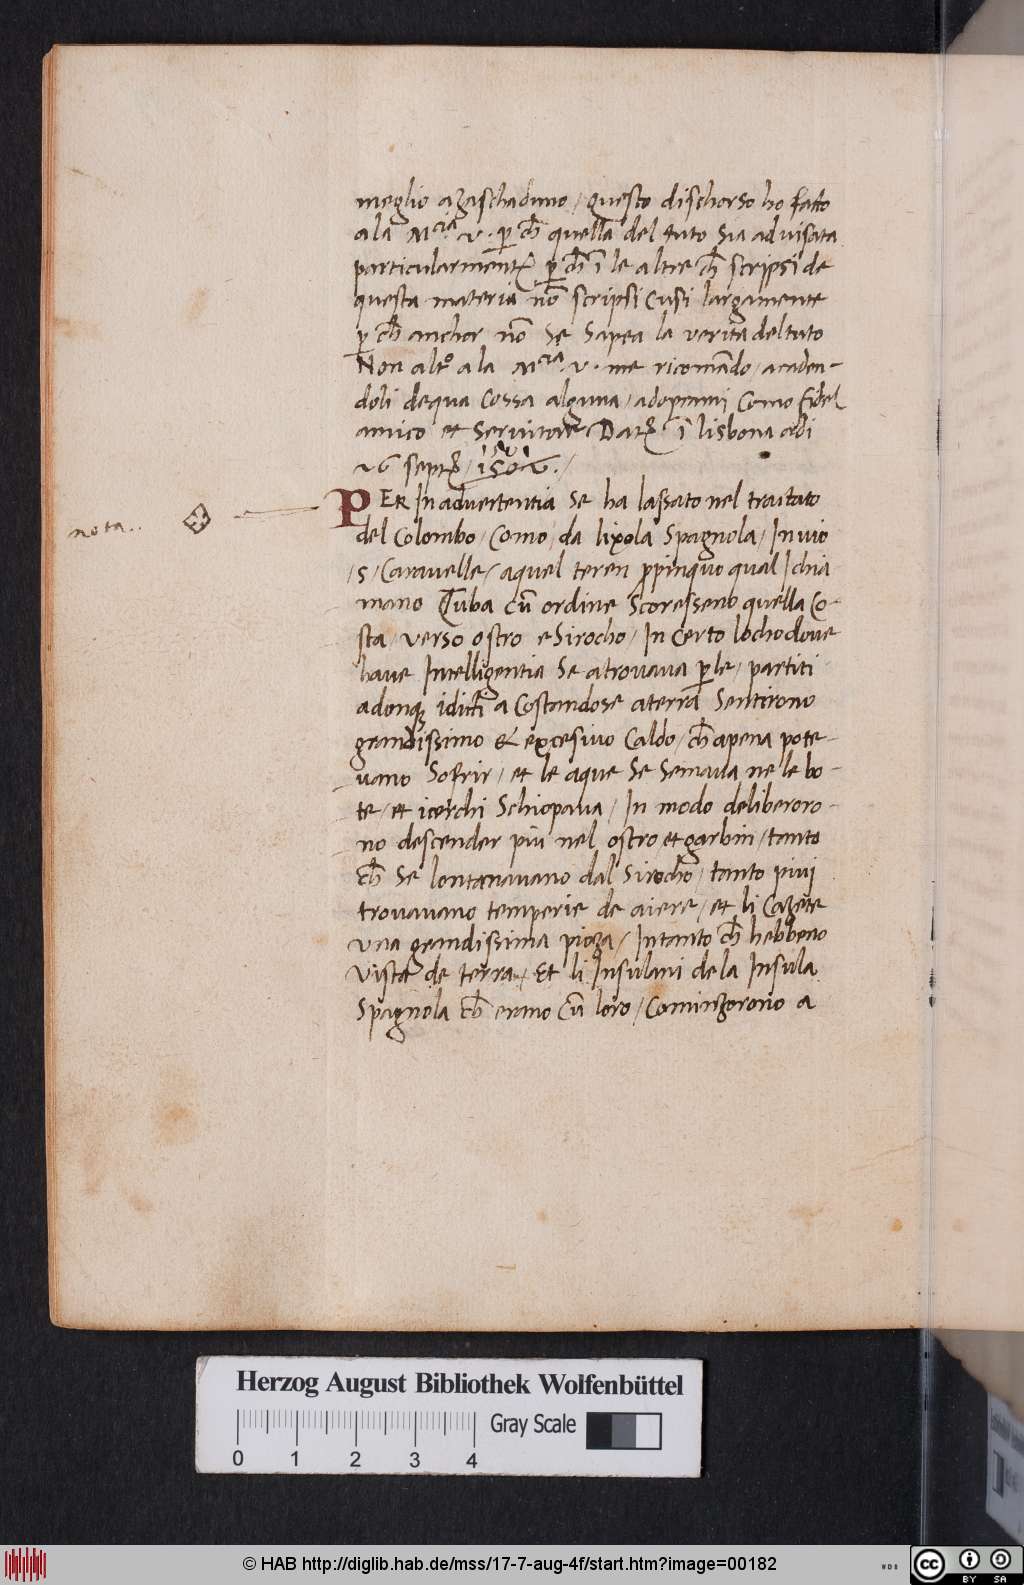 meglio a zaschaduno / questo dischorso ho fatto
a la M.cia. v. p̱ ch̄ quella del tuto sia advisata
particularment̄ p̱ ch̄ ī le altre ch̄ scripsi de
questa materia nō scripsi cusi largamente
p̱ ch̄ anchor nō se sapea la verita del tuto
Non alto a la M.cia. v. me ricomādo / acaden-
doli de qua cossa alguna / adoprami como fidel
amico et servitor Dat̄ ī lisbona adi
septē /
nota..
PER Inadvertentia se ha lassato nel tractato
del Colombo / Como / da lixola Spagnola / Invio
/ 5 / Caravelle / a quel teren propinquo qual Ichia
mano Cuba cū ordine scoresseno quella Co-
sta / verso ostro e Sirocho / In certo locho dove
have Intelligentia se atrovava perle / partiti
adonq̄ idicti a Costandose a terra sentirono
grandissimo & excesivo Caldo / ch̄ apena pote-
vano sofrir / et le aque se semava ne le bo-
te / et icerchi schiopava / In modo deliberoro-
no descender piu nel ostro et garbin / tanto
ch̄ se lontanavano dal Sirocho / tanto piui
trovavano temperie de aiere / et li Cazete
una grandissima pioza / Intanto ch̄ hebbeno
vista de terra / Et li Insulani de la Insula
Spagnola ch̄ erano cū loro / Cominzorono a
Herzog August Bibliothek Wolfenbüttel
Gray Scale
0 1 2 3 4
© HAB http://diglib.hab.de/mss/17-7-aug-4f/start.htm?image=00182
WDB
CC BY SA